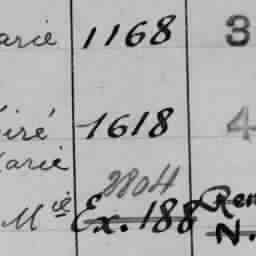 arie 1168 3
iré 1618 4
arie
2804
Mie Ex. 188 Ren
N.